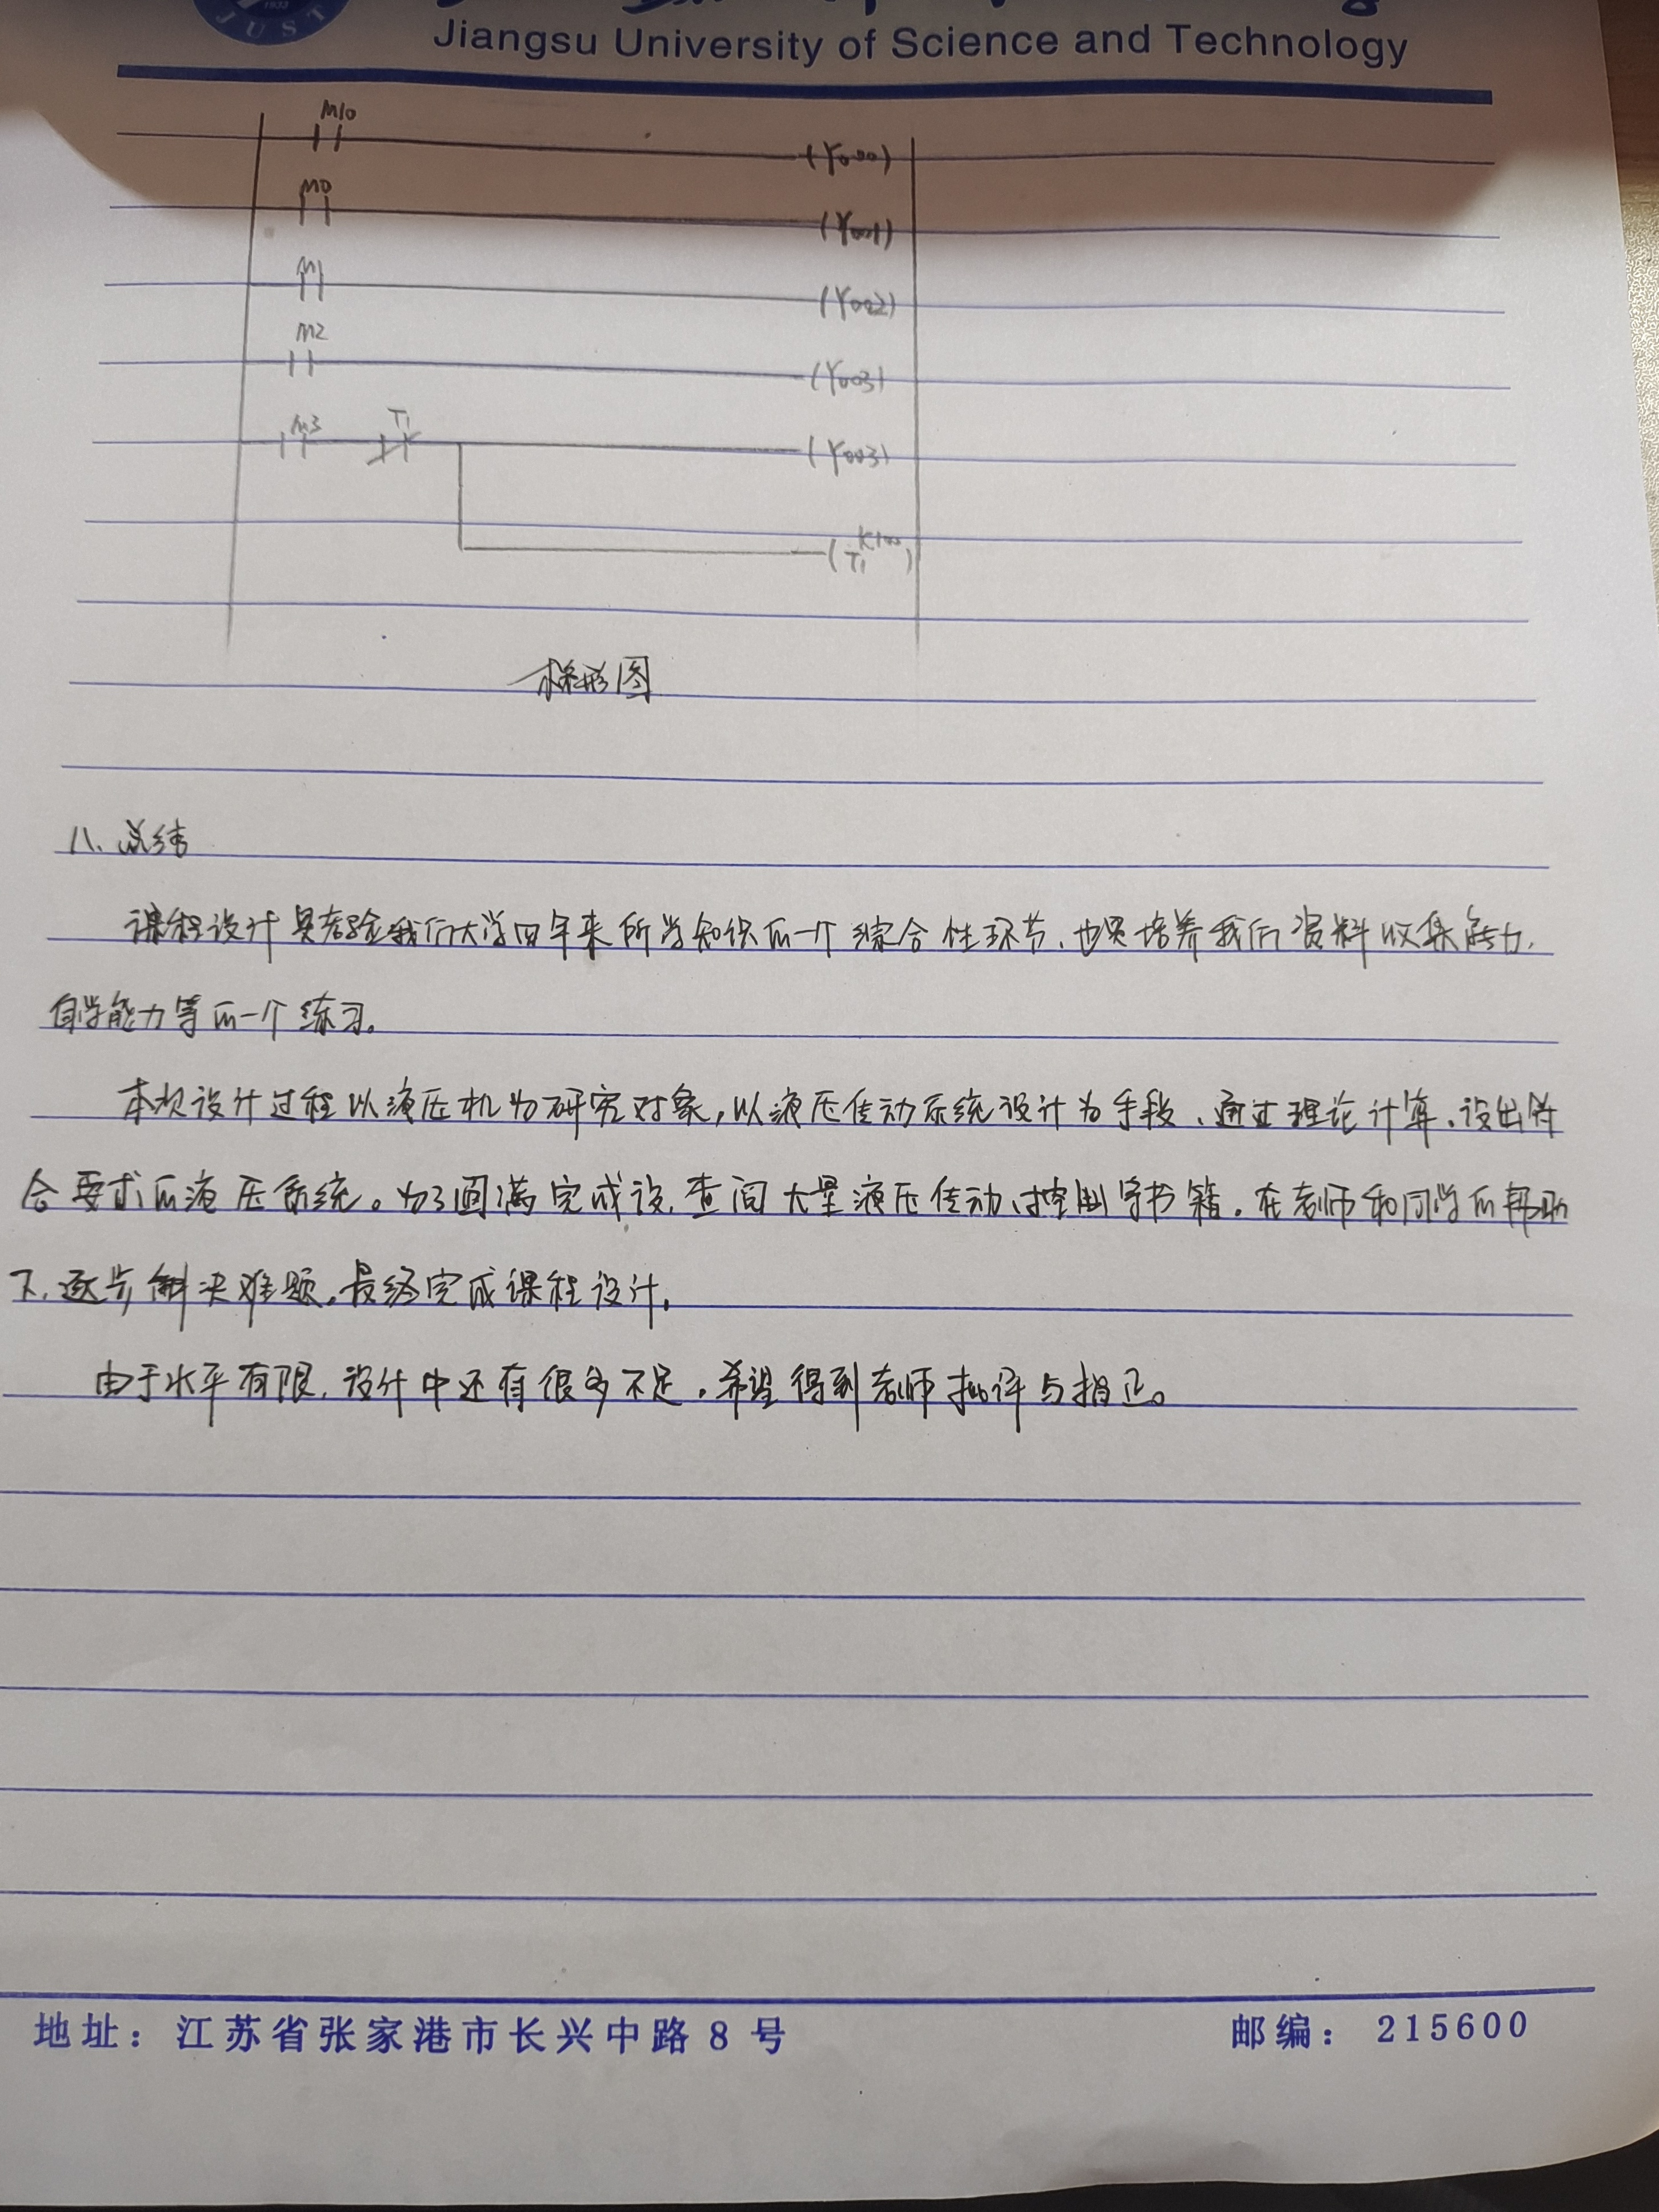 JUST
Jiangsu University of Science and Technology
M10
(Y000)
M0
(Y001)
M1
(Y002)
M2
(Y003)
M3 T1
(Y003)
(T1 K100)
梯形图
八、总结
课程设计是考验我们大学四年来所学知识的一个综合性环节,也是培养我们资料收集能力,
自学能力等的一个练习。
本次设计过程以液压机为研究对象,以液压传动系统设计为手段、通过理论计算,设出符
合要求的液压系统。为了圆满完成设,查阅大量液压传动、控制等书籍。在老师和同学的帮助
下,逐步解决难题,最终完成课程设计。
由于水平有限,设计中还有很多不足,希望得到老师批评与指正。
地址:江苏省张家港市长兴中路8号
邮编:215600